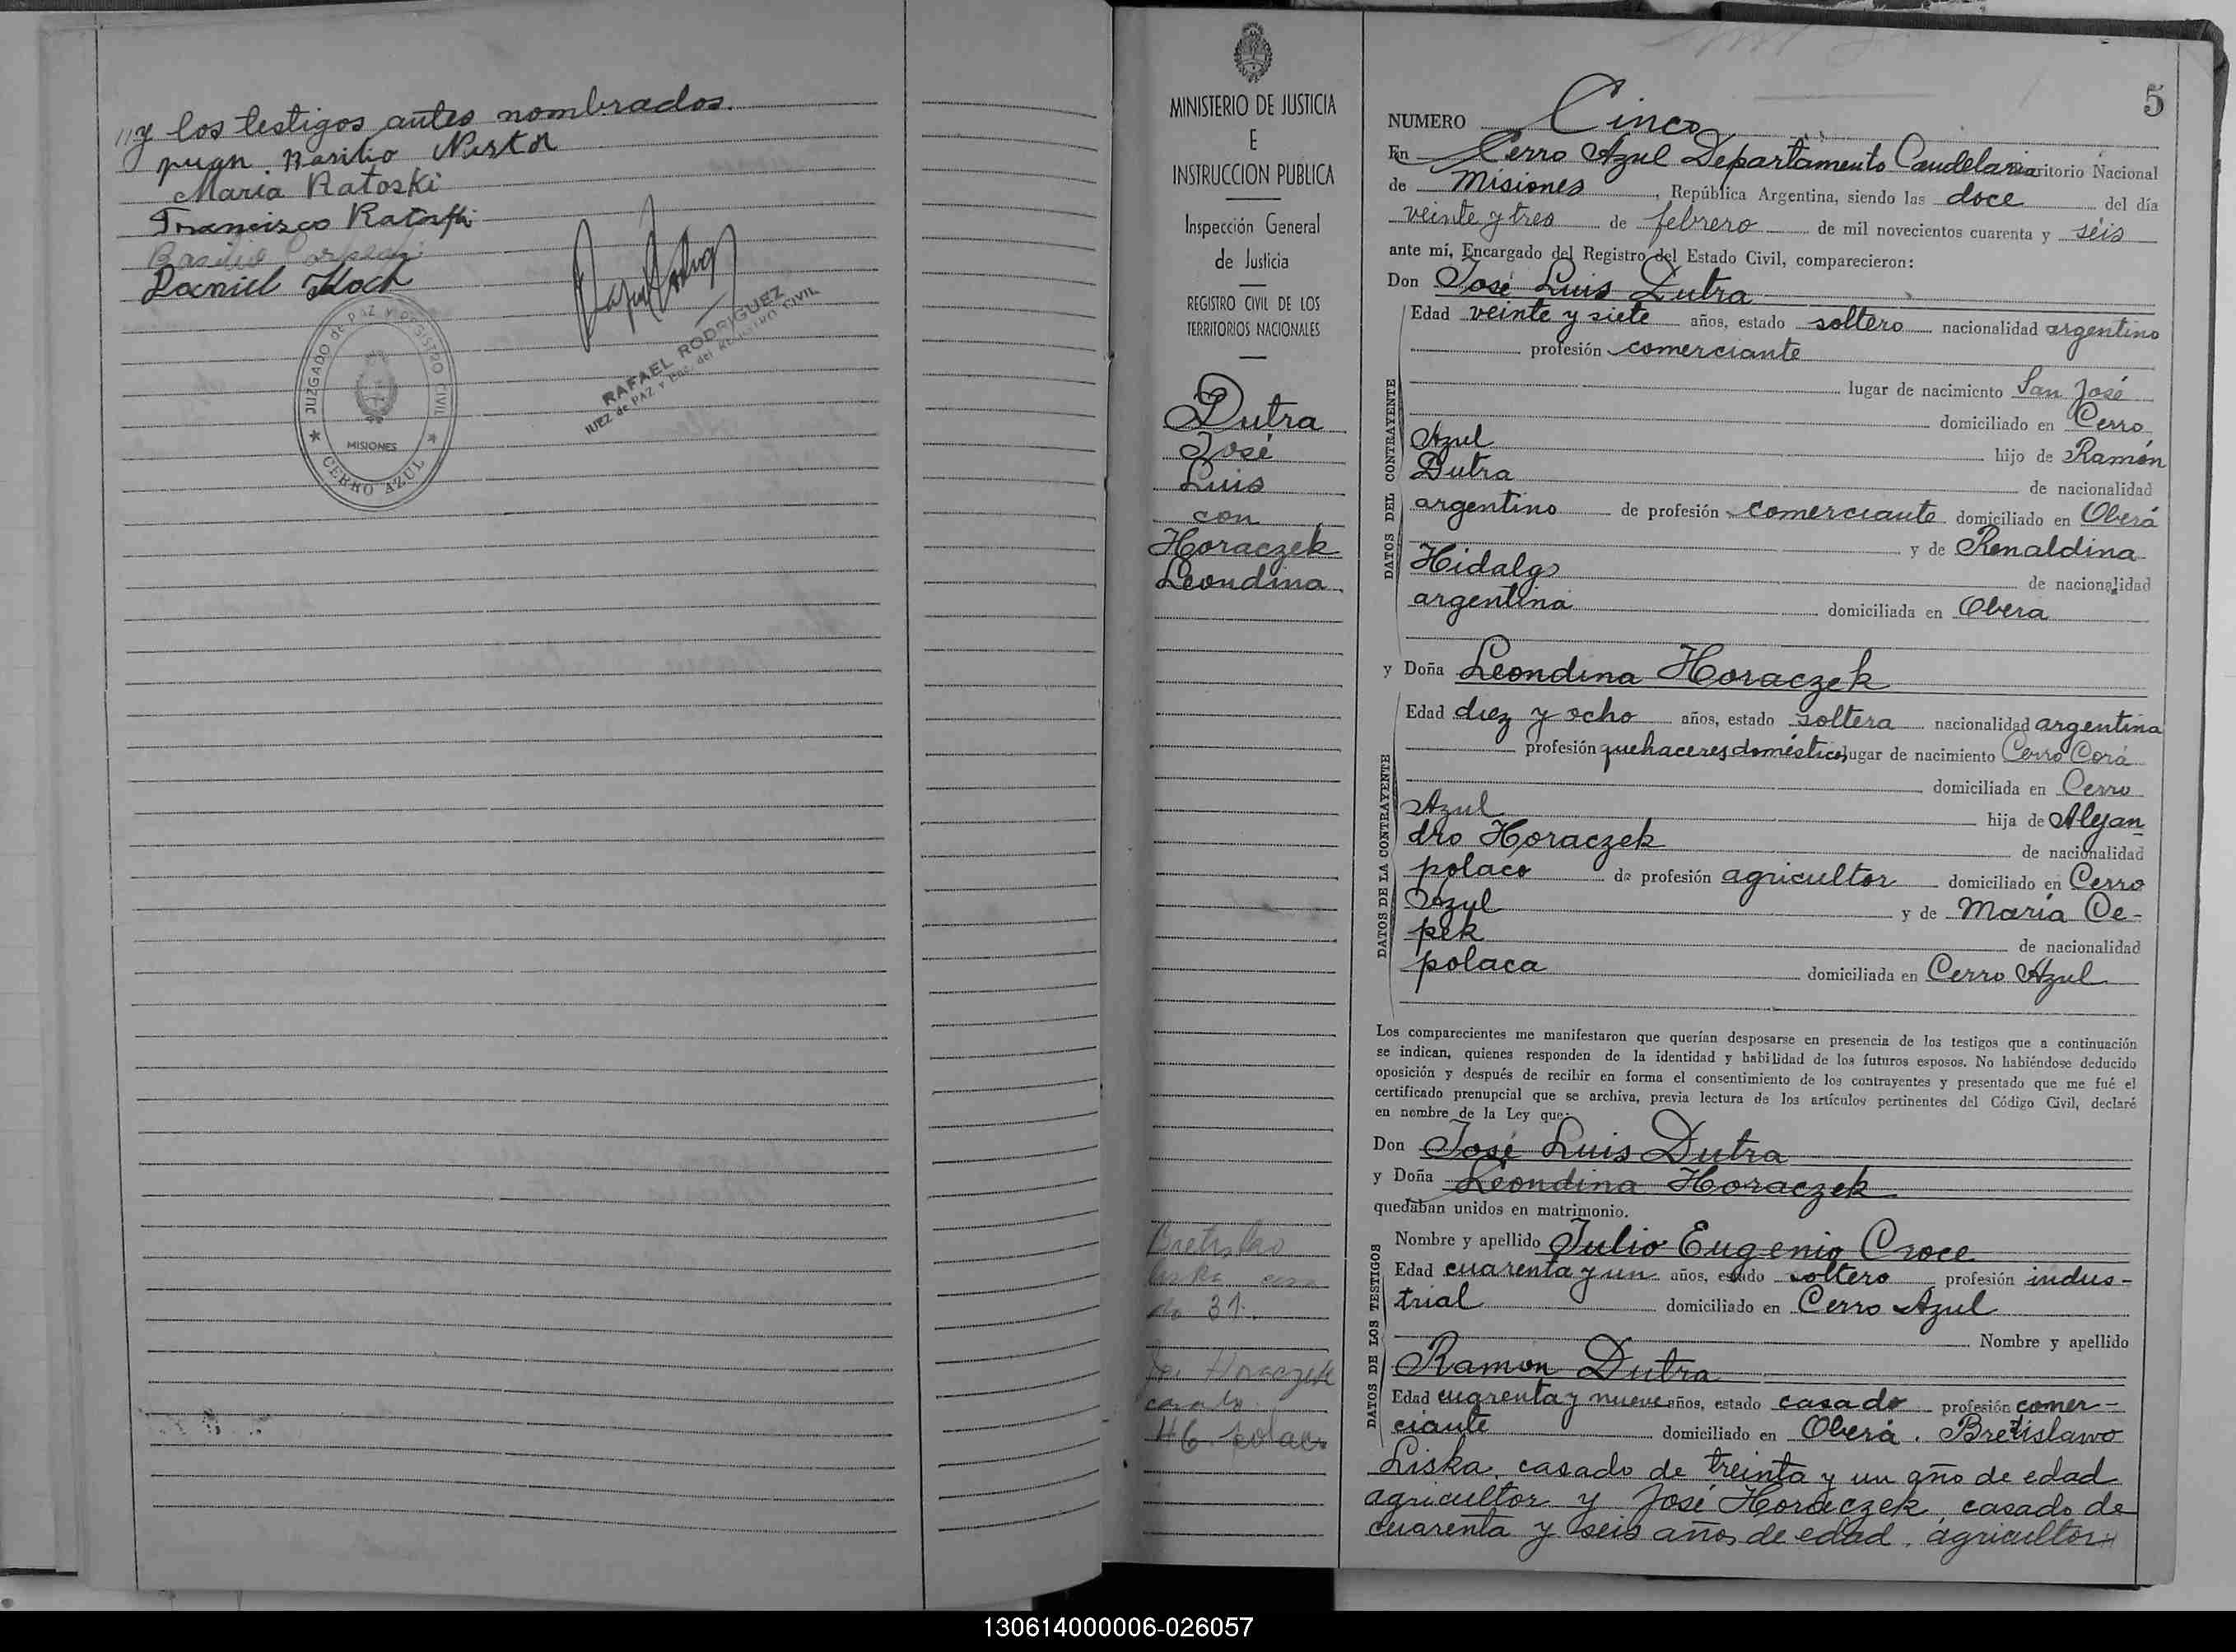 y los testigos antes nombrados.
Basilio
Maria Ratoski
Francisco Ratoski
Basilio
Daniel Koch
JUZGADO de PAZ Y REGISTRO CIVIL
MISIONES
★ CERRO AZUL ★
RAFAEL RODRIGUEZ
JUEZ de PAZ Y Enc. del REGISTRO CIVIL
MINISTERIO DE JUSTICIA
E
INSTRUCCION PUBLICA
Inspección General
de Justicia
REGISTRO CIVIL DE LOS
TERRITORIOS NACIONALES
Dutra
José
Luis
con
Horaczek
Leondina
31.
Horaczek
casado
46. polaco
5
NUMERO Cinco
En Cerro Azul Departamento Candelaria Territorio Nacional
de Misiones, República Argentina, siendo las doce del día
veinte y tres de febrero de mil novecientos cuarenta y séis
ante mí, Encargado del Registro del Estado Civil, comparecieron:
Don José Luis Dutra
DATOS DEL CONTRAYENTE
Edad veinte y siete años, estado soltero nacionalidad argentino
profesión comerciante
lugar de nacimiento San José
domiciliado en Cerro
Azul hijo de Ramón
Dutra de nacionalidad
argentino de profesión comerciante domiciliado en Oberá
y de Renaldina
Hidalgo de nacionalidad
argentina domiciliada en Obera
y Doña Leondina Horaczek
DATOS DE LA CONTRAYENTE
Edad diez y ocho años, estado soltera nacionalidad argentina
profesión quehaceres domésticos lugar de nacimiento Cerro Corá
domiciliada en Cerro
Azul hija de Alejan
dro Horaczek de nacionalidad
polaco de profesión agricultor domiciliado en Cerro
Azul y de María Ce-
pek de nacionalidad
polaca domiciliada en Cerro Azul
Los comparecientes me manifestaron que querían desposarse en presencia de los testigos que a continuación
se indican, quienes responden de la identidad y habilidad de los futuros esposos. No habiéndose deducido
oposición y después de recibir en forma el consentimiento de los contrayentes y presentado que me fué el
certificado prenupcial que se archiva, previa lectura de los artículos pertinentes del Código Civil, declaré
en nombre de la Ley que:
Don José Luis Dutra
y Doña Leondina Horaczek
quedaban unidos en matrimonio.
DATOS DE LOS TESTIGOS
Nombre y apellido Julio Eugenio Croce
Edad cuarenta y un años, estado soltero profesión indus-
trial domiciliado en Cerro Azul
Nombre y apellido
Ramon Dutra
Edad cuarenta y nueve años, estado casado profesión comer-
ciante domiciliado en Oberá. Bretislawo
Liska, casado de treinta y un año de edad
agricultor y José Horaczek, casado de
cuarenta y seis años de edad, agricultor
130614000006-026057